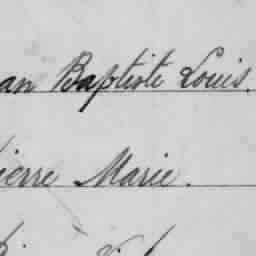 an Baptiste Louis.
ierre Marie.